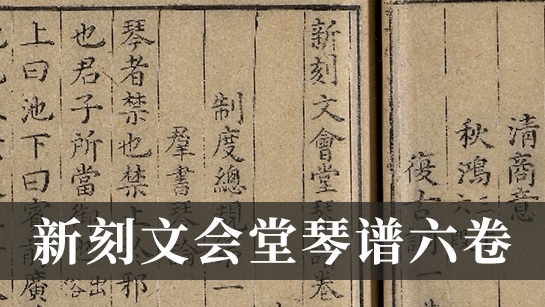 清商意
秋鴻六
復古
新刻文會堂琴譜卷
制度總規
羣書琴論
琴者禁也禁止邪
也君子所當御
上曰池下曰容前廣
新刻文会堂琴谱六卷